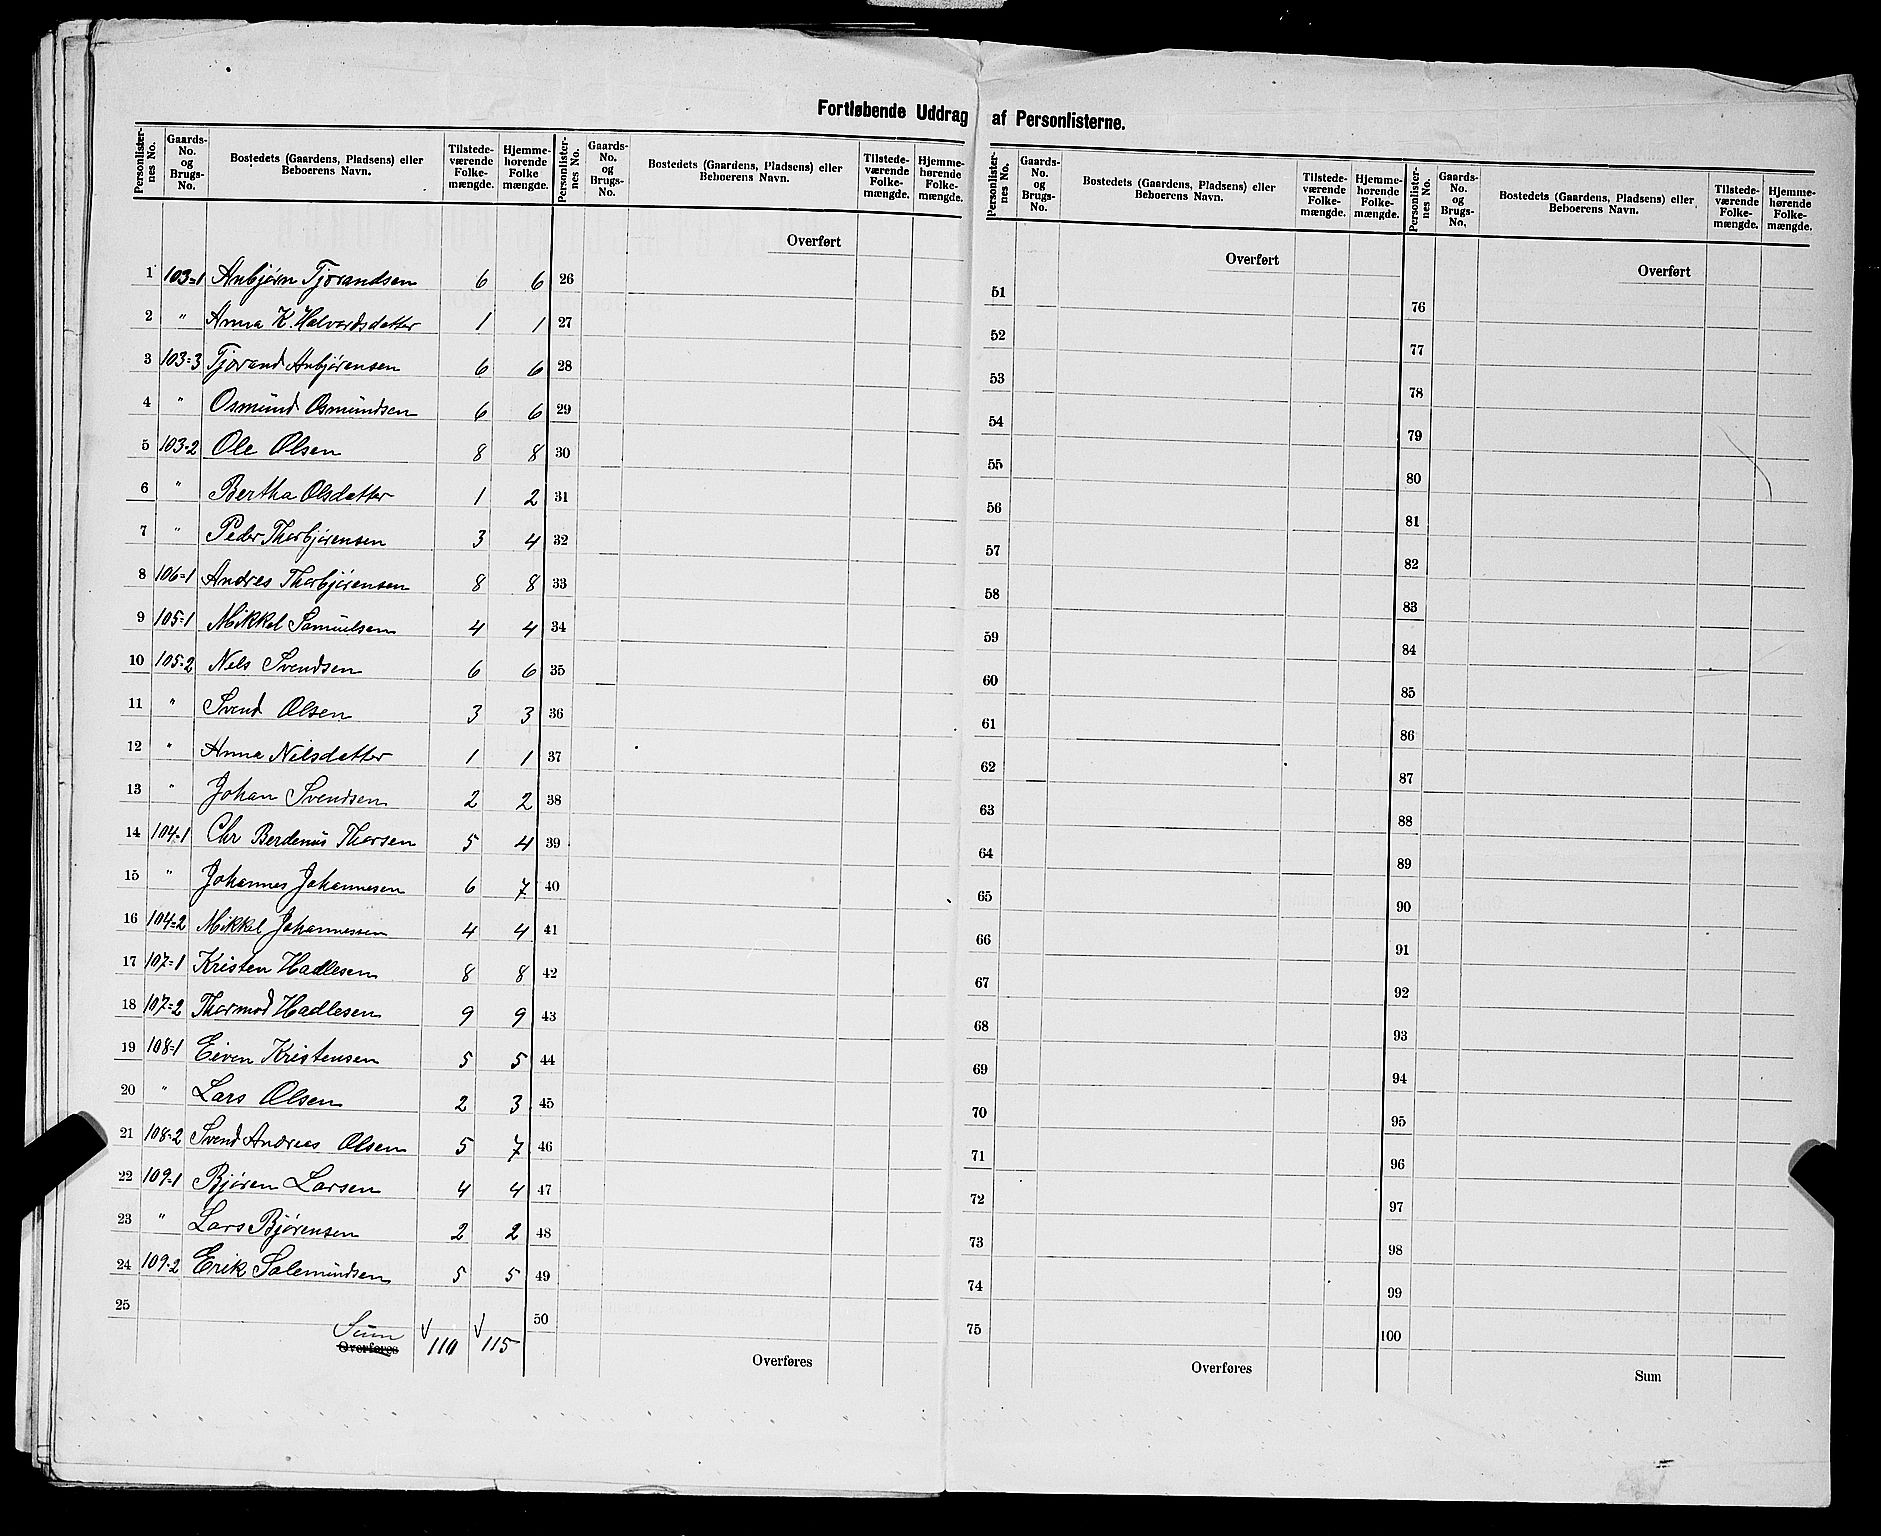 Fortløbende Uddrag af Personlisterne.
Personlister-nes No. | Gaards-No. og Brugs-No. | Bostedets (Gaardens, Pladsens) eller Beboerens Navn. | Tilstede-værende Folke-mængde. | Hjemme-hørende Folke mængde.
1 103=1 Anbjørn Tjorandsen 6 6
2 " Anna K. Halvardsdatter 1 1
3 103=3 Tjorand Anbjørensen 6 6
4 " Osmund Osmundsen 6 6
5 103=2 Ole Olsen 8 8
6 " Bertha Olsdatter 1 2
7 " Peder Thorbjørensen 3 4
8 106=1 Andres Thorbjørensen 8 8
9 105=1 Mikkel Samuelsen 4 4
10 105=2 Nels Svendsen 6 6
11 " Svend Olsen 3 3
12 " Anna Nilsdatter 1 1
13 " Johan Svendsen 2 2
14 104=1 Chr Berdenus Thorsen 5 4
15 " Johannes Johannesen 6 7
16 104=2 Mikkel Johannessen 4 4
17 107=1 Kristen Hadlesen 8 8
18 107=2 Thormod Hadlesen 9 9
19 108=1 Eiven Kristensen 5 5
20 " Lars Olsen 2 3
21 108=2 Svend Andreas Olsen 5 7
22 109=1 Bjøren Larsen 4 4
23 " Lars Bjørensen 2 2
24 109=2 Erik Salemundsen 5 5
25
Sum 110 115
Overføres
Personlister-nes No. | Gaards-No. og Brugs-No. | Bostedets (Gaardens, Pladsens) eller Beboerens Navn. | Tilstede-værende Folke-mængde. | Hjemme-hørende Folke-mængde.
Overført
26
27
28
29
30
31
32
33
34
35
36
37
38
39
40
41
42
43
44
45
46
47
48
49
50
Overføres
Personlister-nes No. | Gaards-No. og Brugs-No. | Bostedets (Gaardens, Pladsens) eller Beboerens Navn. | Tilstede-værende Folke-mængde. | Hjemme-hørende Folke-mængde.
Overført
51
52
53
54
55
56
57
58
59
60
61
62
63
64
65
66
67
68
69
70
71
72
73
74
75
Overføres
Personlister-nes No. | Gaards-No. og Brugs-No. | Bostedets (Gaardens, Pladsens) eller Beboerens Navn. | Tilstede-værende Folke-mængde. | Hjemme-hørende Folke-mængde.
Overført
76
77
78
79
80
81
82
83
84
85
86
87
88
89
90
91
92
93
94
95
96
97
98
99
100
Sum